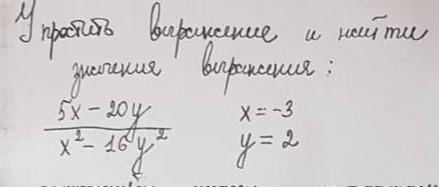 Упростить выражение и найти
значения выражения:
5x - 20y x = -3
x² - 16y² y = 2